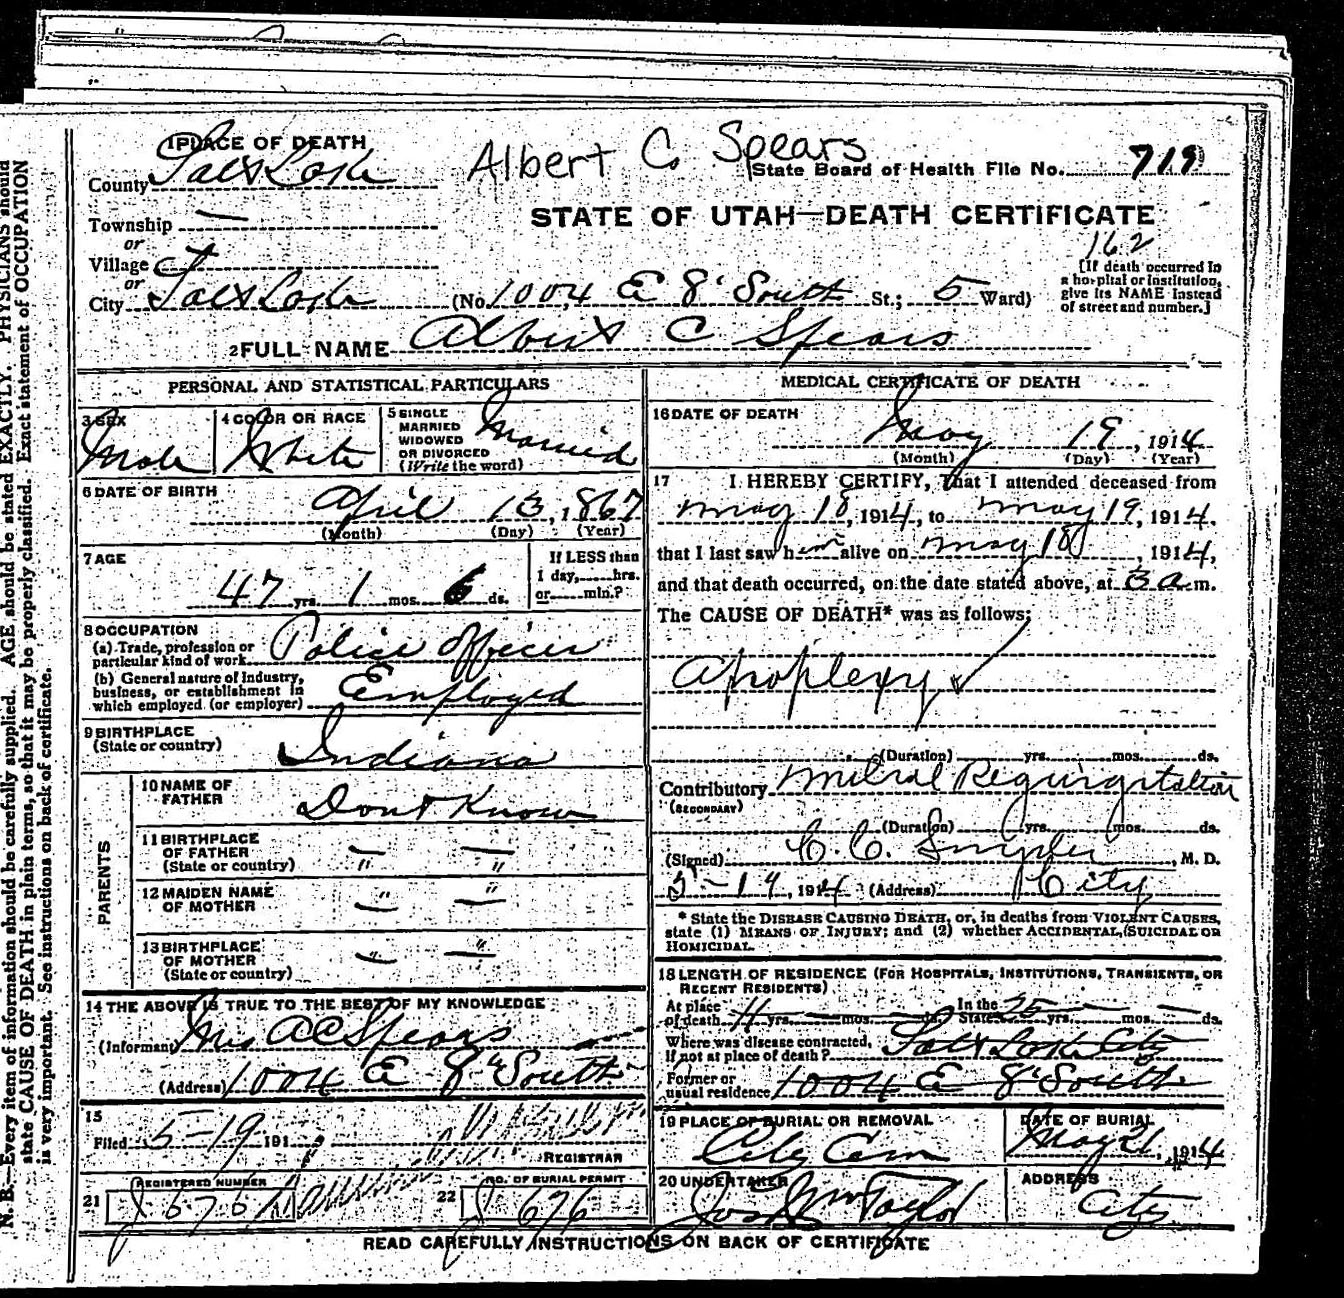 N. B.—Every item of information should be carefully supplied. AGE should be stated EXACTLY. PHYSICIANS should
state CAUSE OF DEATH in plain terms, so that it may be properly classified. Exact statement of OCCUPATION
is very important. See instructions on back of certificate.
1 PLACE OF DEATH
Albert C. Spears
County Salt Lake
State Board of Health File No. 719
Township —
STATE OF UTAH—DEATH CERTIFICATE
162
or
Village
or
City Salt Lake (No. 1004 E 8" South St.; 5 Ward)
[If death occurred in
a hospital or institution,
give its NAME instead
of street and number.]
2 FULL NAME Albert C Spears
PERSONAL AND STATISTICAL PARTICULARS
3 SEX Male
4 COLOR OR RACE White
5 SINGLE
MARRIED
WIDOWED
OR DIVORCED
(Write the word)
Married
6 DATE OF BIRTH
April 13, 1867
(Month) (Day) (Year)
7 AGE
47 yrs. 1 mos. 6 ds.
If LESS than
1 day, ___ hrs.
or ___ min.?
8 OCCUPATION
(a) Trade, profession or
particular kind of work Police Officer
(b) General nature of Industry,
business, or establishment in
which employed (or employer) Employed
9 BIRTHPLACE
(State or country) Indiana
PARENTS
10 NAME OF
FATHER Dont Know
11 BIRTHPLACE
OF FATHER
(State or country) — " — "
12 MAIDEN NAME
OF MOTHER — " — "
13 BIRTHPLACE
OF MOTHER
(State or country) — — "
14 THE ABOVE IS TRUE TO THE BEST OF MY KNOWLEDGE
(Informant) Mrs A C Spears
(Address) 1004 E 8" South
15
Filed 5-19, 191
REGISTRAR
21 REGISTERED NUMBER
J 676
22 NO. OF BURIAL PERMIT
J 676
MEDICAL CERTIFICATE OF DEATH
16 DATE OF DEATH
May 19, 1914
(Month) (Day) (Year)
17 I HEREBY CERTIFY, That I attended deceased from
May 18, 1914, to May 19, 1914.
that I last saw him alive on May 18, 1914,
and that death occurred, on the date stated above, at 3 a.m.
The CAUSE OF DEATH* was as follows:
Apoplexy ✓
(Duration) yrs. mos. ds.
Contributory Mitral Regurgitation
(SECONDARY)
(Duration) yrs. mos. ds.
(Signed) C. C. Snyder, M. D.
5-19, 1914 (Address) City
* State the DISEASE CAUSING DEATH, or, in deaths from VIOLENT CAUSES,
state (1) MEANS OF INJURY; and (2) whether ACCIDENTAL, SUICIDAL OR
HOMICIDAL.
18 LENGTH OF RESIDENCE (FOR HOSPITALS, INSTITUTIONS, TRANSIENTS, OR
RECENT RESIDENTS)
At place
of death 11 yrs. — mos. — ds.
In the
State 25 yrs. — mos. — ds.
Where was disease contracted,
if not at place of death? Salt Lake City
Former or
usual residence 1004 E 8" South
19 PLACE OF BURIAL OR REMOVAL
City Cem
DATE OF BURIAL
May 21, 1914
20 UNDERTAKER
Jos Wm Taylor
ADDRESS
City
READ CAREFULLY INSTRUCTIONS ON BACK OF CERTIFICATE